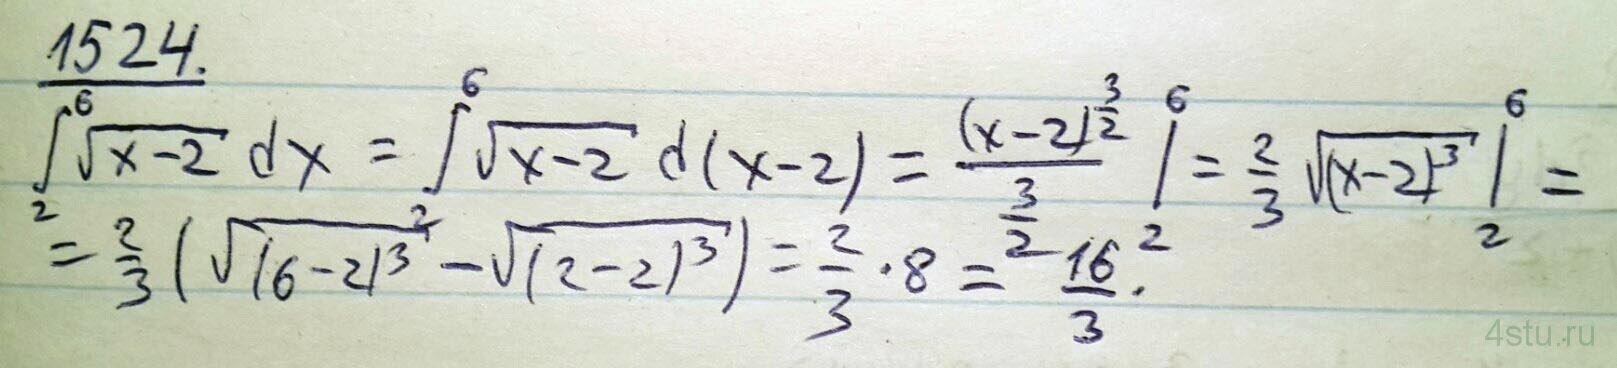 1524.
∫₂⁶ √(x-2) dx = ∫₂⁶ √(x-2) d(x-2) = (x-2)^(3/2) / (3/2) |₂⁶ = 2/3 √((x-2)³) |₂⁶ =
= 2/3 (√((6-2)³) - √((2-2)³)) = 2/3 · 8 = 16/3.
4stu.ru